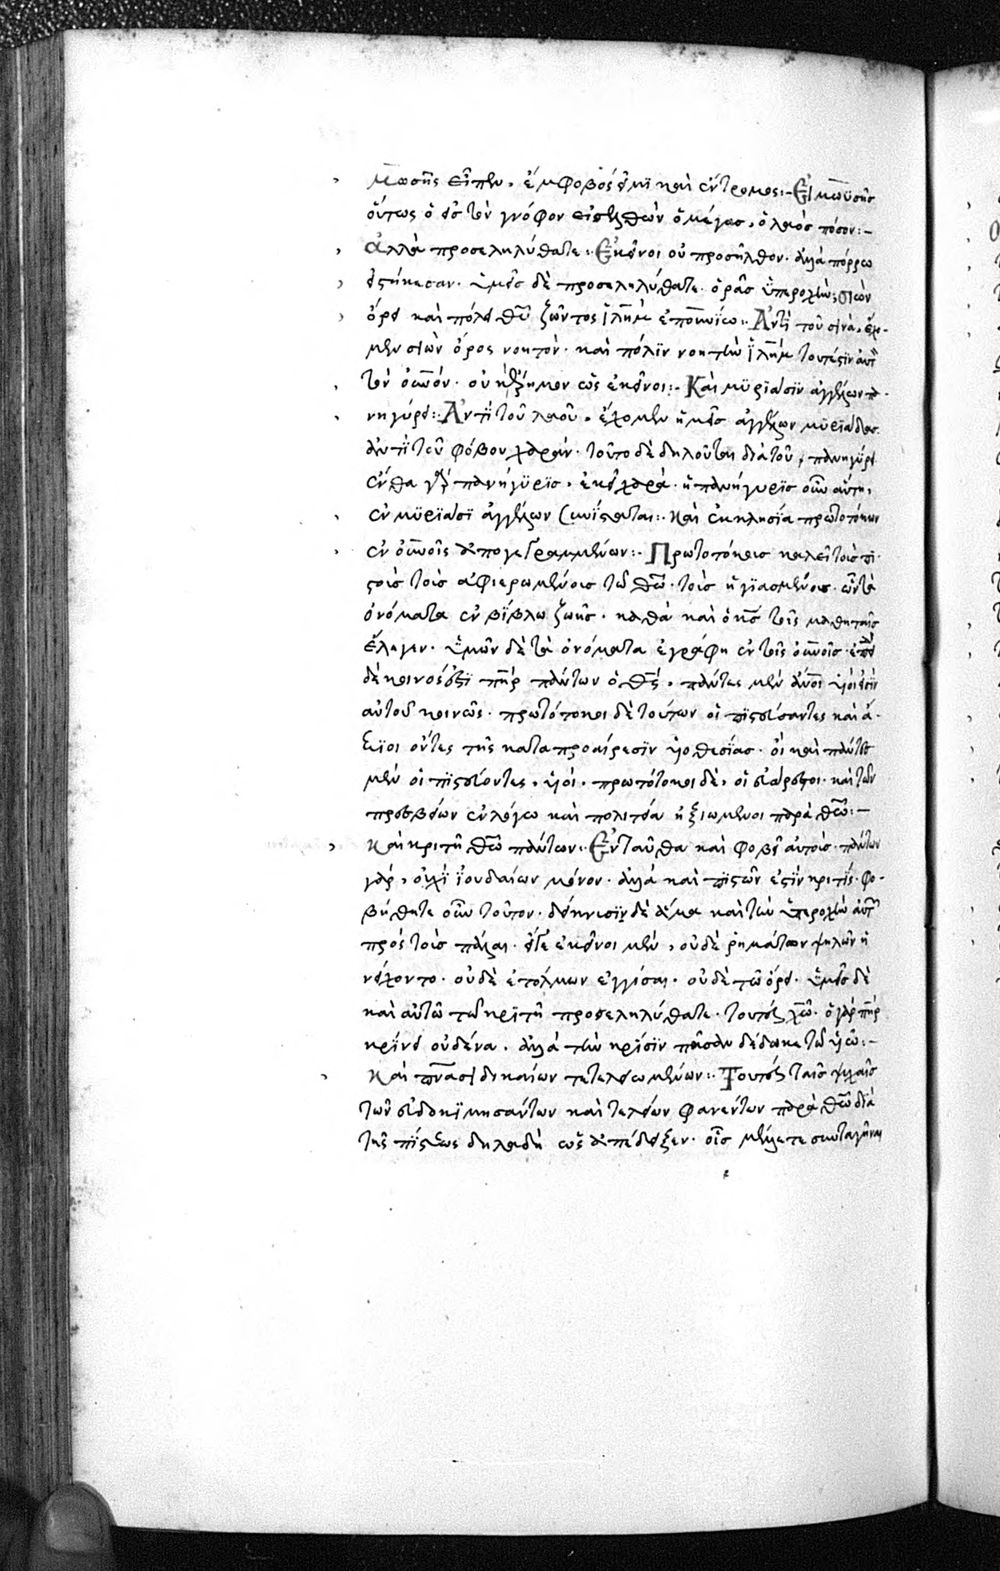 μωσῆς εἶπεν, ἔμφοβός εἰμϊ καὶ ἔντρομος:- Εἰ μωϋσῆς
οὕτως ὁ εἰς τὸν γνόφον εἰσελθὼν ὁ μέγας, ὁ λαὸς πόσον:-
ἀλλὰ προσεληλύθατε:· Ἐκεῖνοι οὐ προσῆλθον· ἀλλὰ πόρρω
εἱστήκεσαν· ὑμεῖς δὲ προσεληλύθατε· ὁρᾶς ὑπεροχήν; σιὼν
ὄρει καὶ πόλει θῦ ζῶντος ἱλῆμ ἐπουνίω:· Ἀντὶ τοῦ σινᾶ, ἔχο-
μεν σιὼν ὄρος νοητὸν· καὶ πόλϊν νοητὴν ἱλῆμ τουτέστιν αὐτὸν
τὸν οὐνόν· οὐκ ἔρημον ὡς ἐκεῖνοι:- Καὶ μϋρϊάσϊν ἀγγέλων πα-
νηγύρει:· Ἀντὶ τοῦ λαοῦ, ἔχομεν ἡμεῖς ἀγγέλων μϋρϊάδας·
ἀντὶ τοῦ φόβου χαράν· τοῦτο δὲ δηλοῦται διὰ τοῦ, πανηγύρει·
ἔνθα γὰρ πανήγϋρϊς, ἐκεῖ χαρά· ἡ πανήγυρϊς οὖν αὕτη,
ἐν μϋρϊάσϊ ἀγγέλων συνίσταται:· Καὶ ἐκκλησία πρωτοτόκων
ἐν οὐνοῖς ἀπογεγραμμένων:· Πρωτοτόκους καλεῖ τοὺς πι-
στοὺς τοὺς ἀφιερωμένους τῶ θῶ· τοὺς ἡγϊασμένους· ὧν τὰ
ὀνόματα ἐν βίβλω ζωῆς· καθὰ καὶ ὁ κς τοῖς μαθηταῖς
ἔλεγεν· ὑμῶν δὲ τὰ ὀνόματα ἐγράφη ἐν τοῖς οὐνοῖς· ἐπεὶ
δὲ κοινός ἐστϊ πηρ πάντων ὁ θς, πάντες μὲν ἄνοι υἱοί εἰσϊν
αὐτοῦ κοινῶς· πρωτότοκοι δὲ τούτων οἱ πϊστεύσαντες καὶ ἄ-
ξϊοι ὄντες τῆς κατὰ προαίρεσϊν υἱοθεσίας· οἱ καὶ πάντες
μὲν οἱ πϊστεύοντες, υἱοί, πρωτότοκοι δὲ, οἱ εὐάρεστοι· καὶ τῶν
πρεσβείων ἐν λόγω καὶ πολιτεία ἠξιωμένοι παρὰ θῶ:-
Καὶ κριτῆ θῶ πάντων:· Ἐνταῦθα καὶ φοβεῖ αὐτοὺς· πάντων
γὰρ, οὐχὶ ἰουδαίων μόνον· ἀλλὰ καὶ πϊστῶν ἐστϊν κριτής· φο-
βήθητε οὖν τοῦτον· δείκνυσϊν δὲ ἅμα καὶ τὴν ὑπεροχὴν αὐτῶν
πρὸς τοὺς πάλαι· εἴγε ἐκεῖνοι μὲν, οὐδὲ ῥημάτων ψιλῶν ἠ-
νείχοντο· οὐδὲ ἐτόλμων ἐγγίσαι· οὐδὲ τῶ ὄρει· ὑμεῖς δὲ
καὶ αὐτῶ τῶ κρϊτῆ προσεληλύθατε· τουτέστι χῶ· ὁ γὰρ πηρ
κρίνει οὐδένα, ἀλλὰ τὴν κρίσϊν πᾶσαν δέδωκε τῶ υἱῶ:-
Καὶ πνασι δικαίων τετελειωμένων:· Τουτέστι ταῖς ψυχαῖς
τῶν εὐδοκϊμησάντων καὶ τελείων φανέντων παρὰ θῶ διὰ
τῆς πίστεως δηλαδὴ ὡς ἀπέδειξεν· οἷς μέλλετε συνταγῆναι